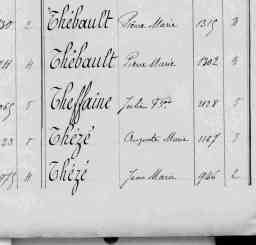 2 Thébault Pierre Marie 1315
4 Thébault Pierre Marie 1302 4
5 Theffaine Julien 5
5 Thézé Auguste Marie 1167 3
4 Thézé Jean Marie 946 2